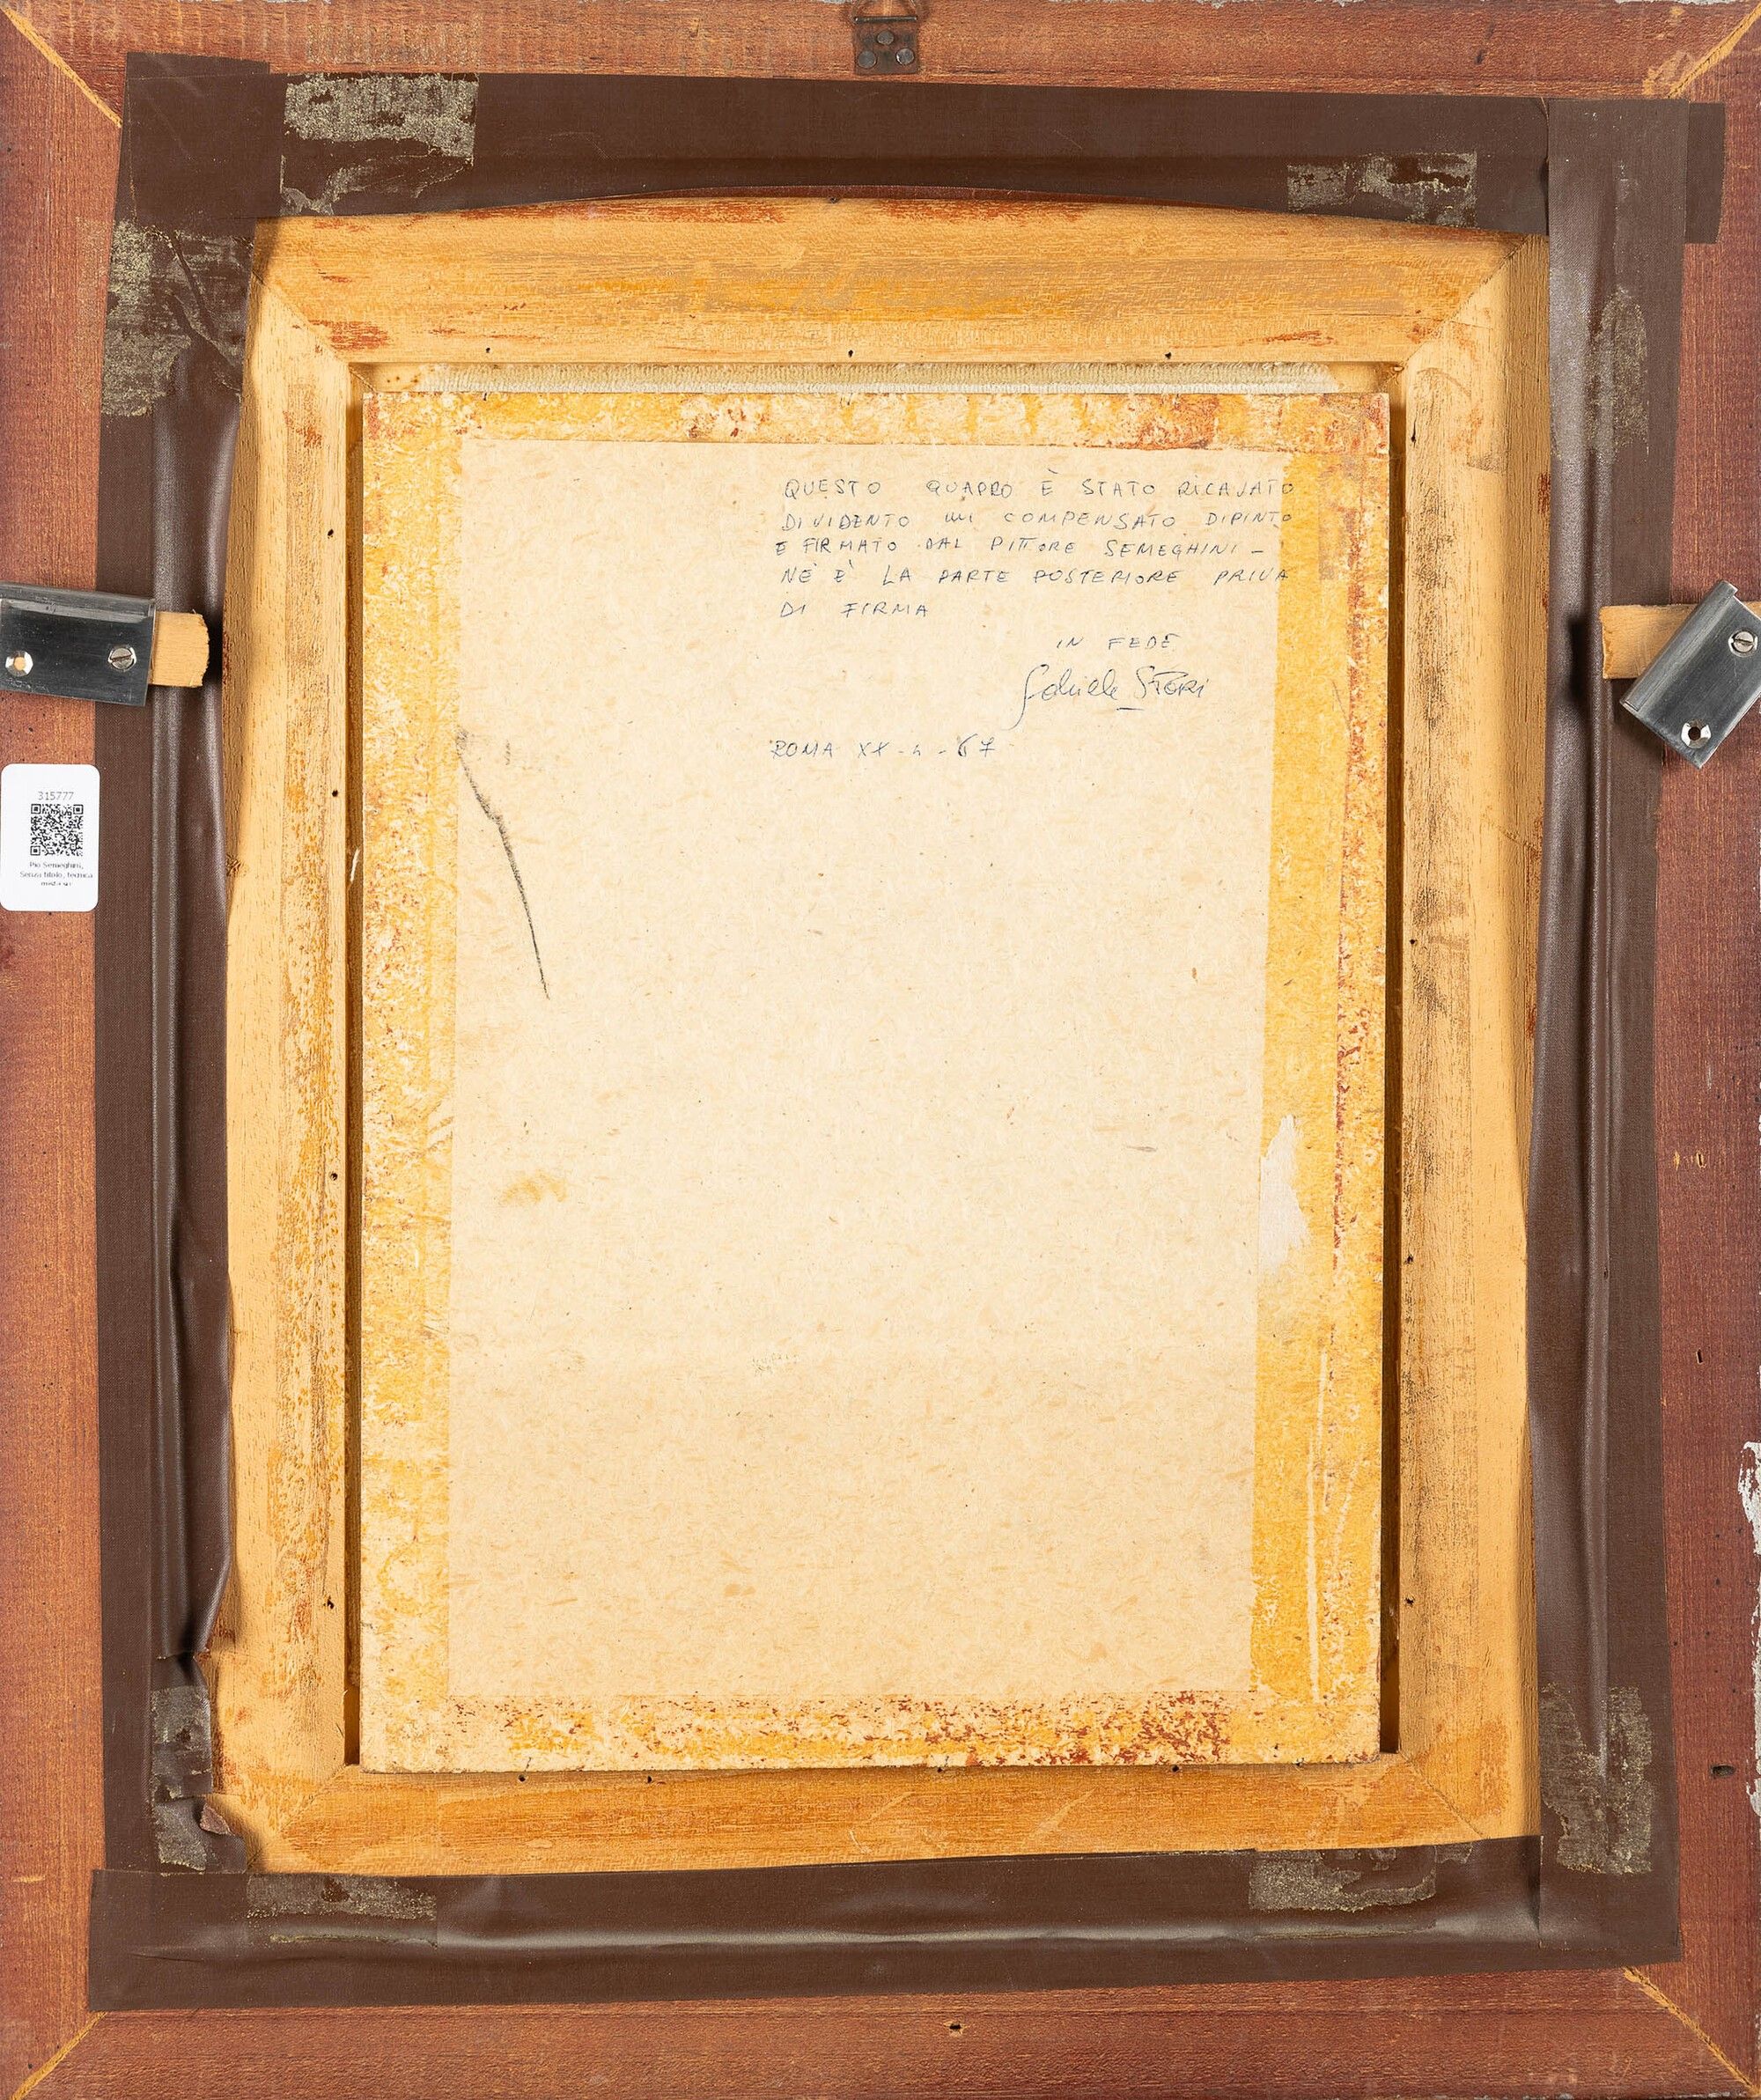 QUESTO QUADRO È STATO RICAVATO
DIVIDENTO UN COMPENSATO DIPINTO
E FIRMATO DAL PITTORE SEMEGHINI -
NE È LA PARTE POSTERIORE PRIVA
DI FIRMA
IN FEDE
Gabriele STERI
ROMA XX - 4 - 67
315777
Pio Semeghini,
Senza titolo, tecnica
mista su